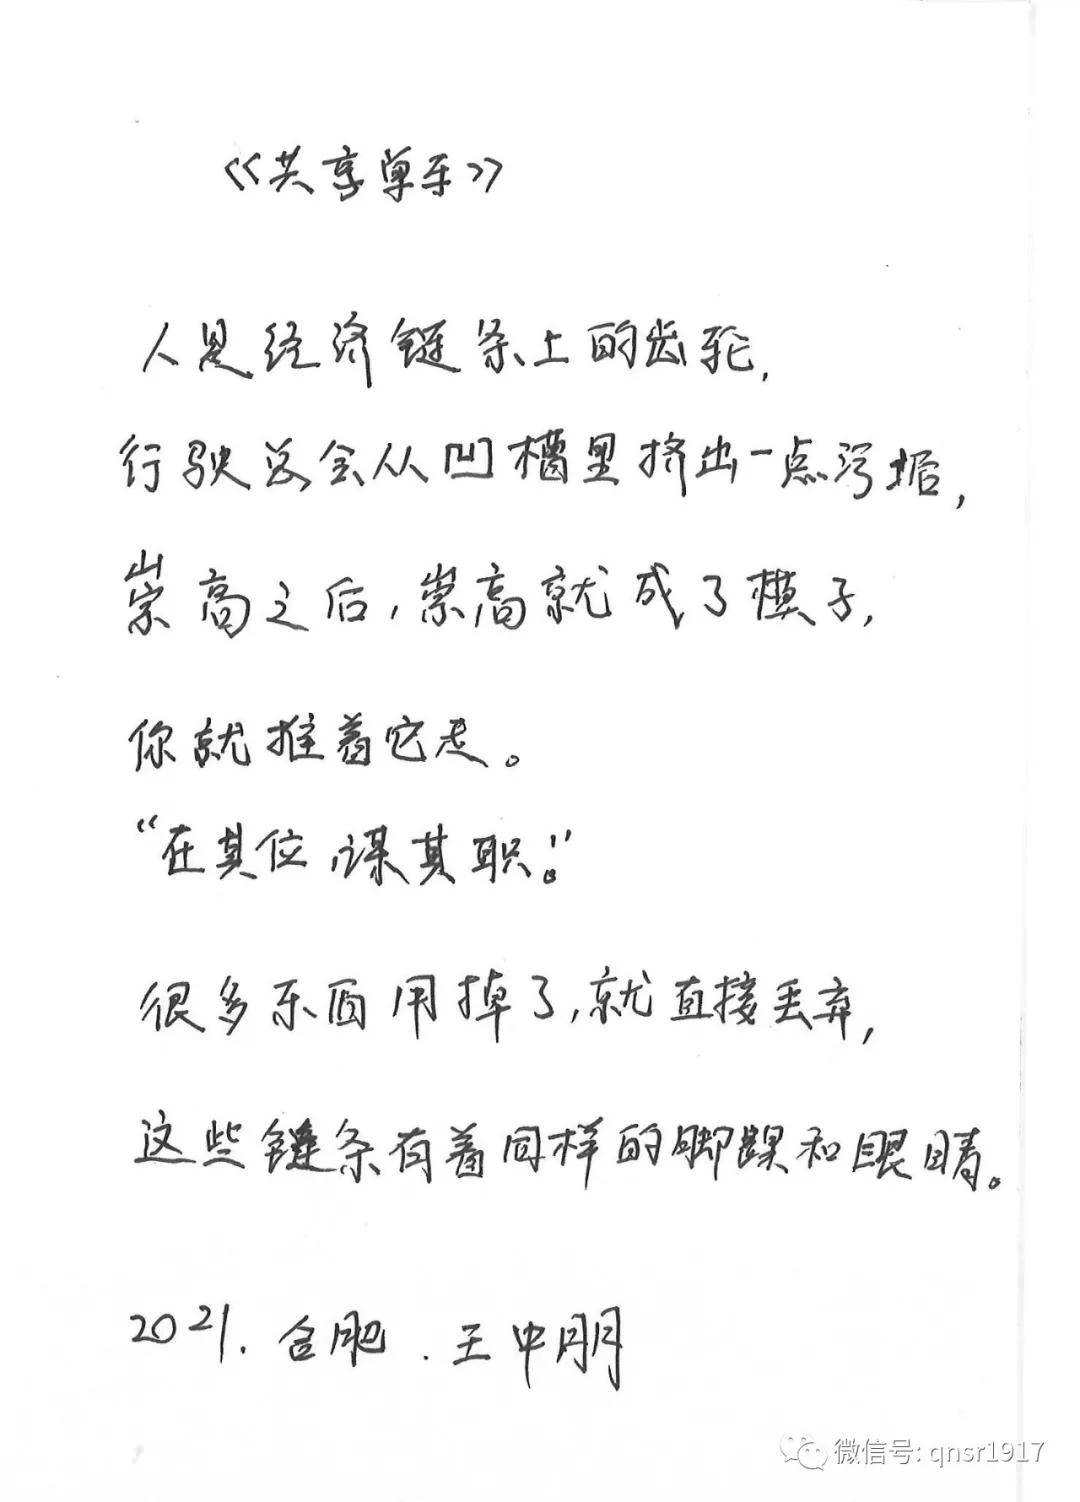 《共享单车》
人是经济链条上的齿轮,
行驶总会从凹槽里挤出一点污垢,
崇高之后,崇高就成了模子,
你就推着它走。
“在其位,谋其职。”
很多东西用掉了,就直接丢弃,
这些链条有着同样的脚踝和眼睛。
2021.合肥.王中朋
微信号: qnsr1917